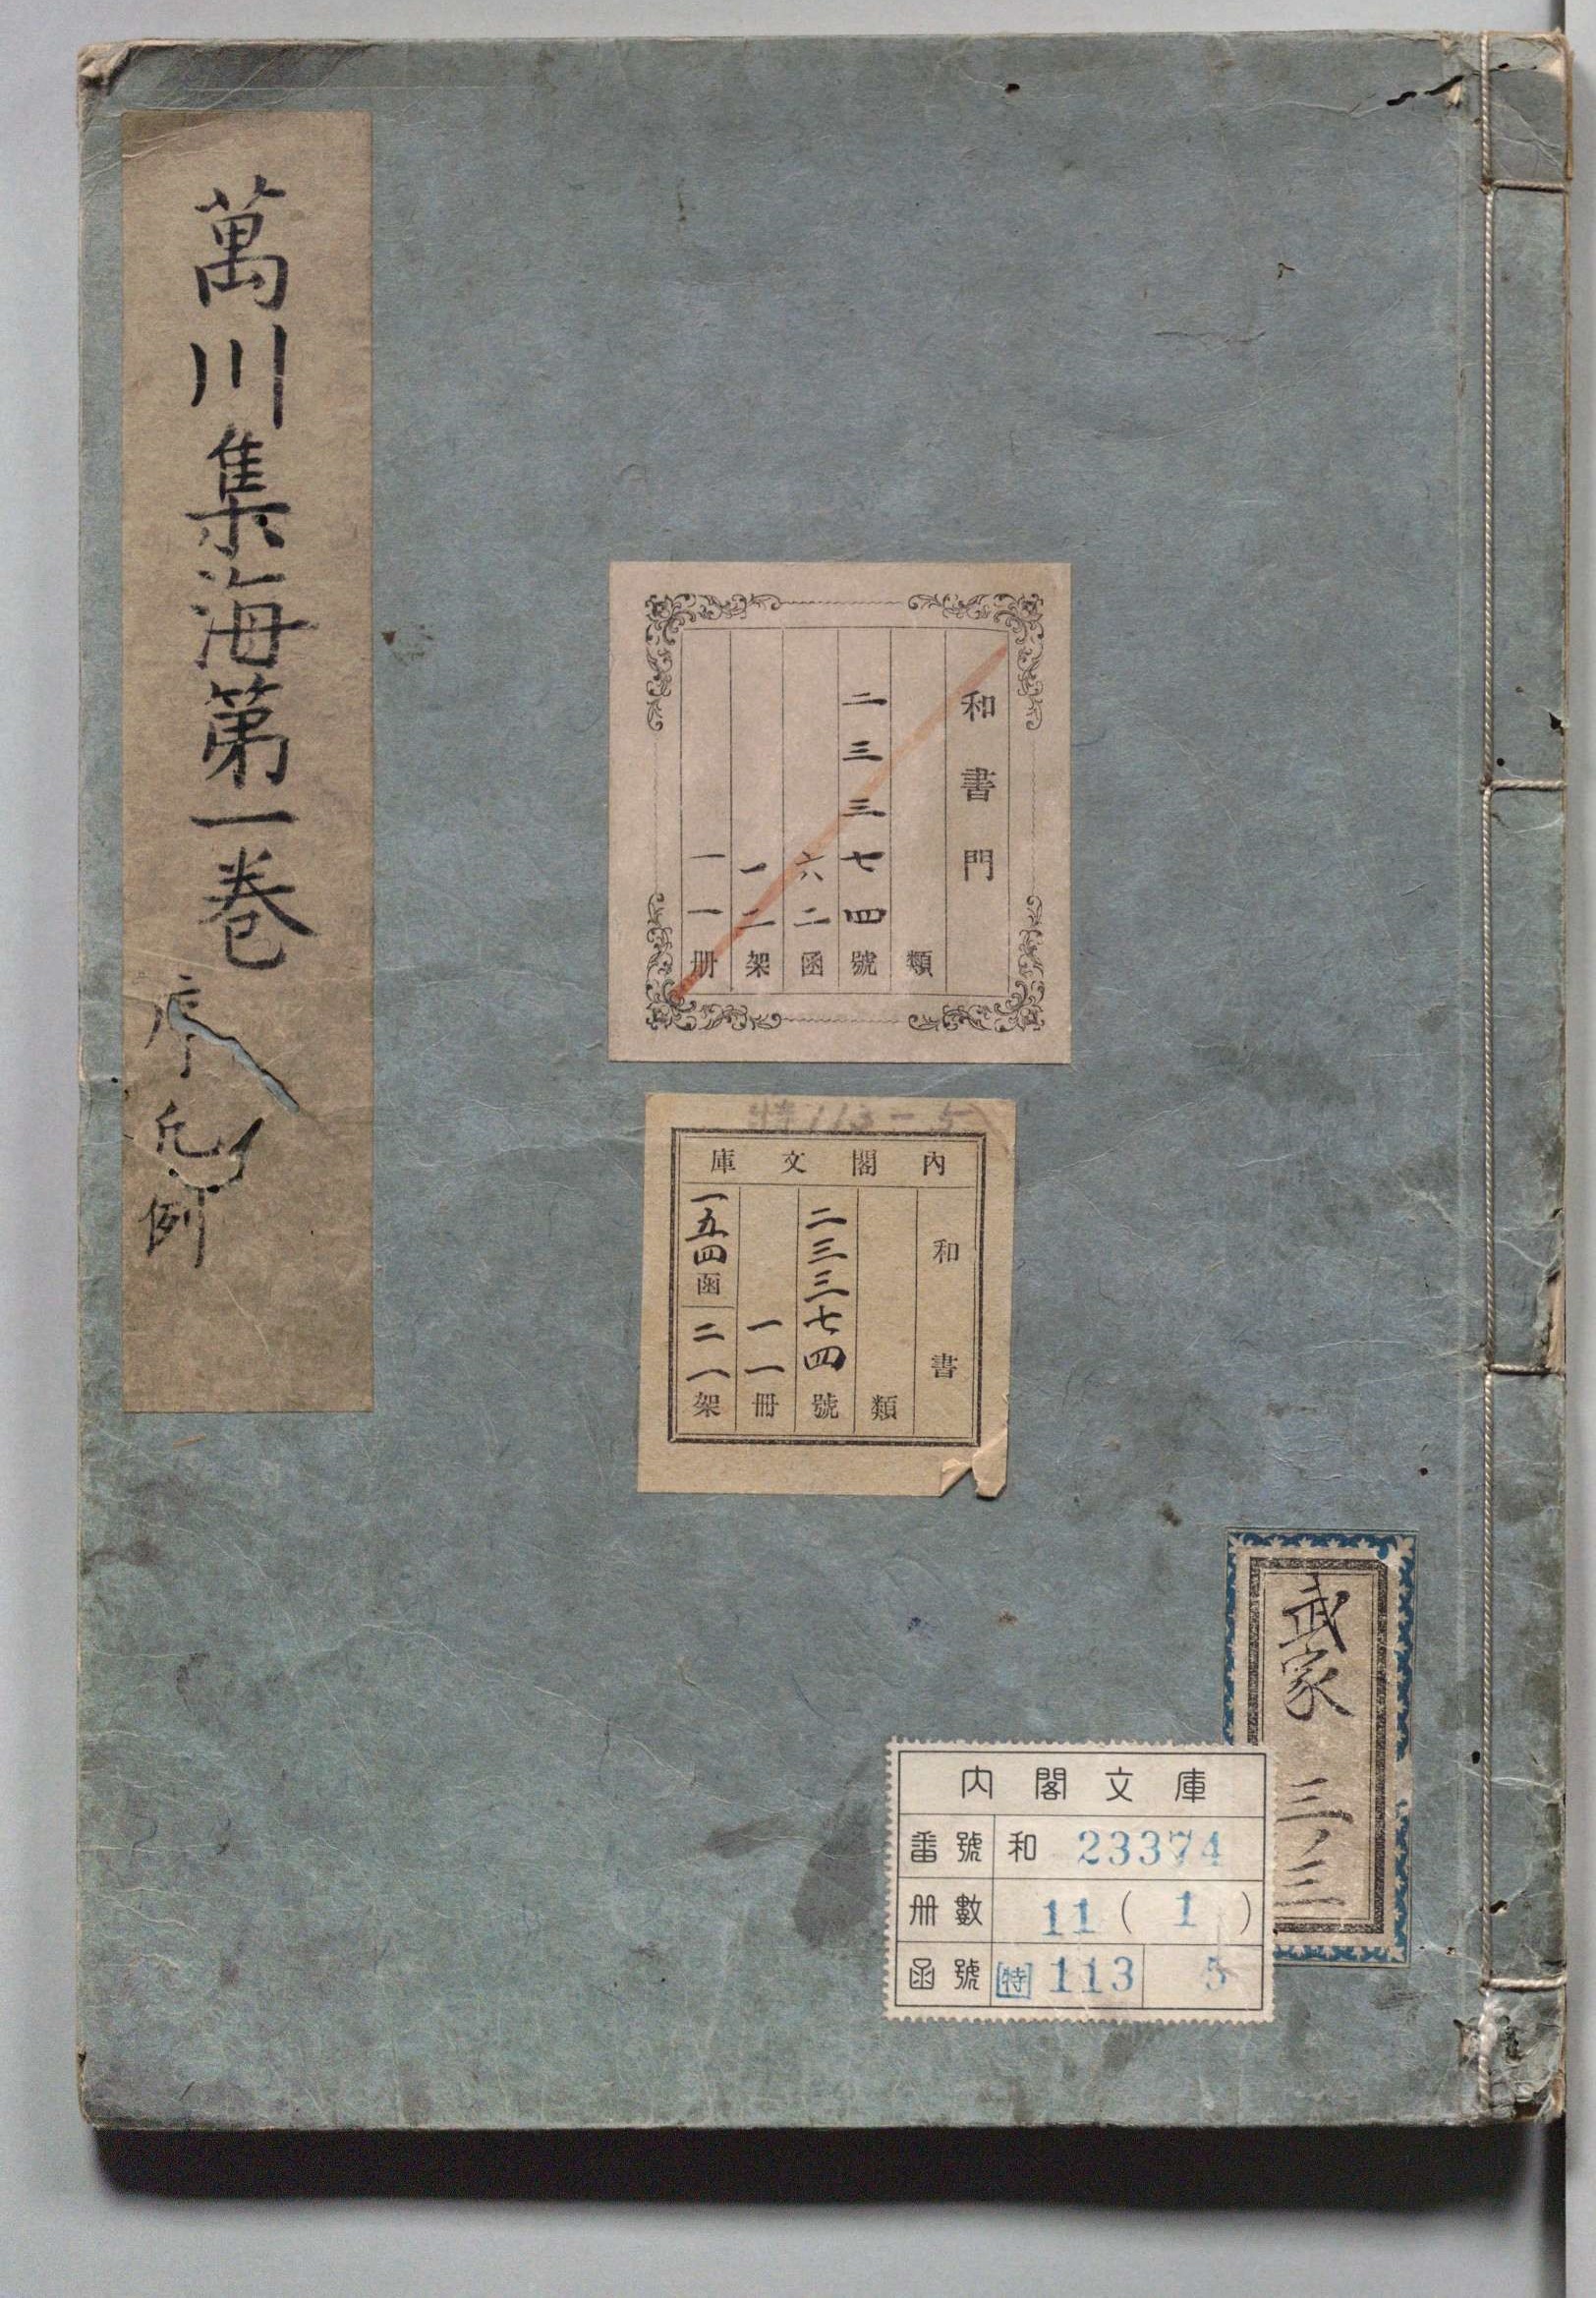 萬川集海第一巻
序凡例
和書門
類
二三三七四號
六二函
一二架
一一冊
特113-5
內閣文庫
和書
類
二三三七四號
一一冊
一五四函
二一架
武家 三ノ三
内閣文庫
番號 和 23374
冊數 11(1)
函號 特 113 5